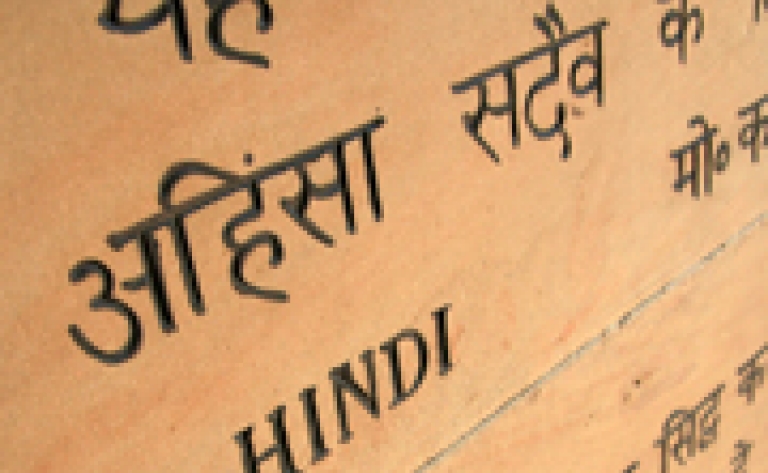 यह
अहिंसा सदैव के
मो० क
HINDI
सिद्ध